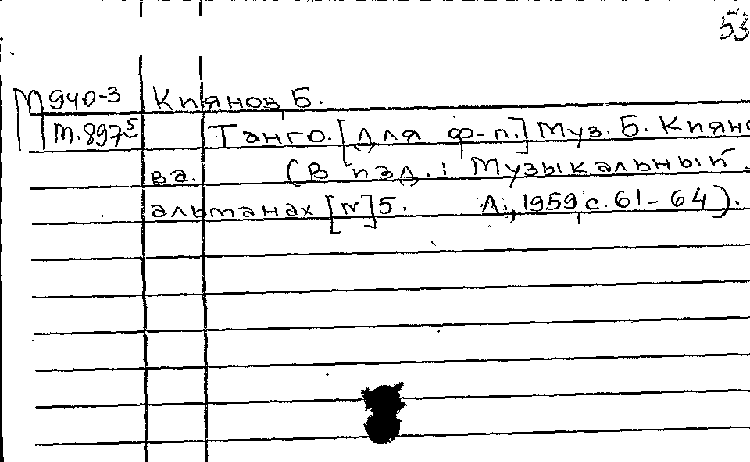 53
М 940-3 Киянов, Б.
м.897⁵ Танго. [Для ф-п.] Муз. Б. Кияно
ва. (В изд.: Музыкальный
альманах [№]5. Л., 1959, с. 61-64).